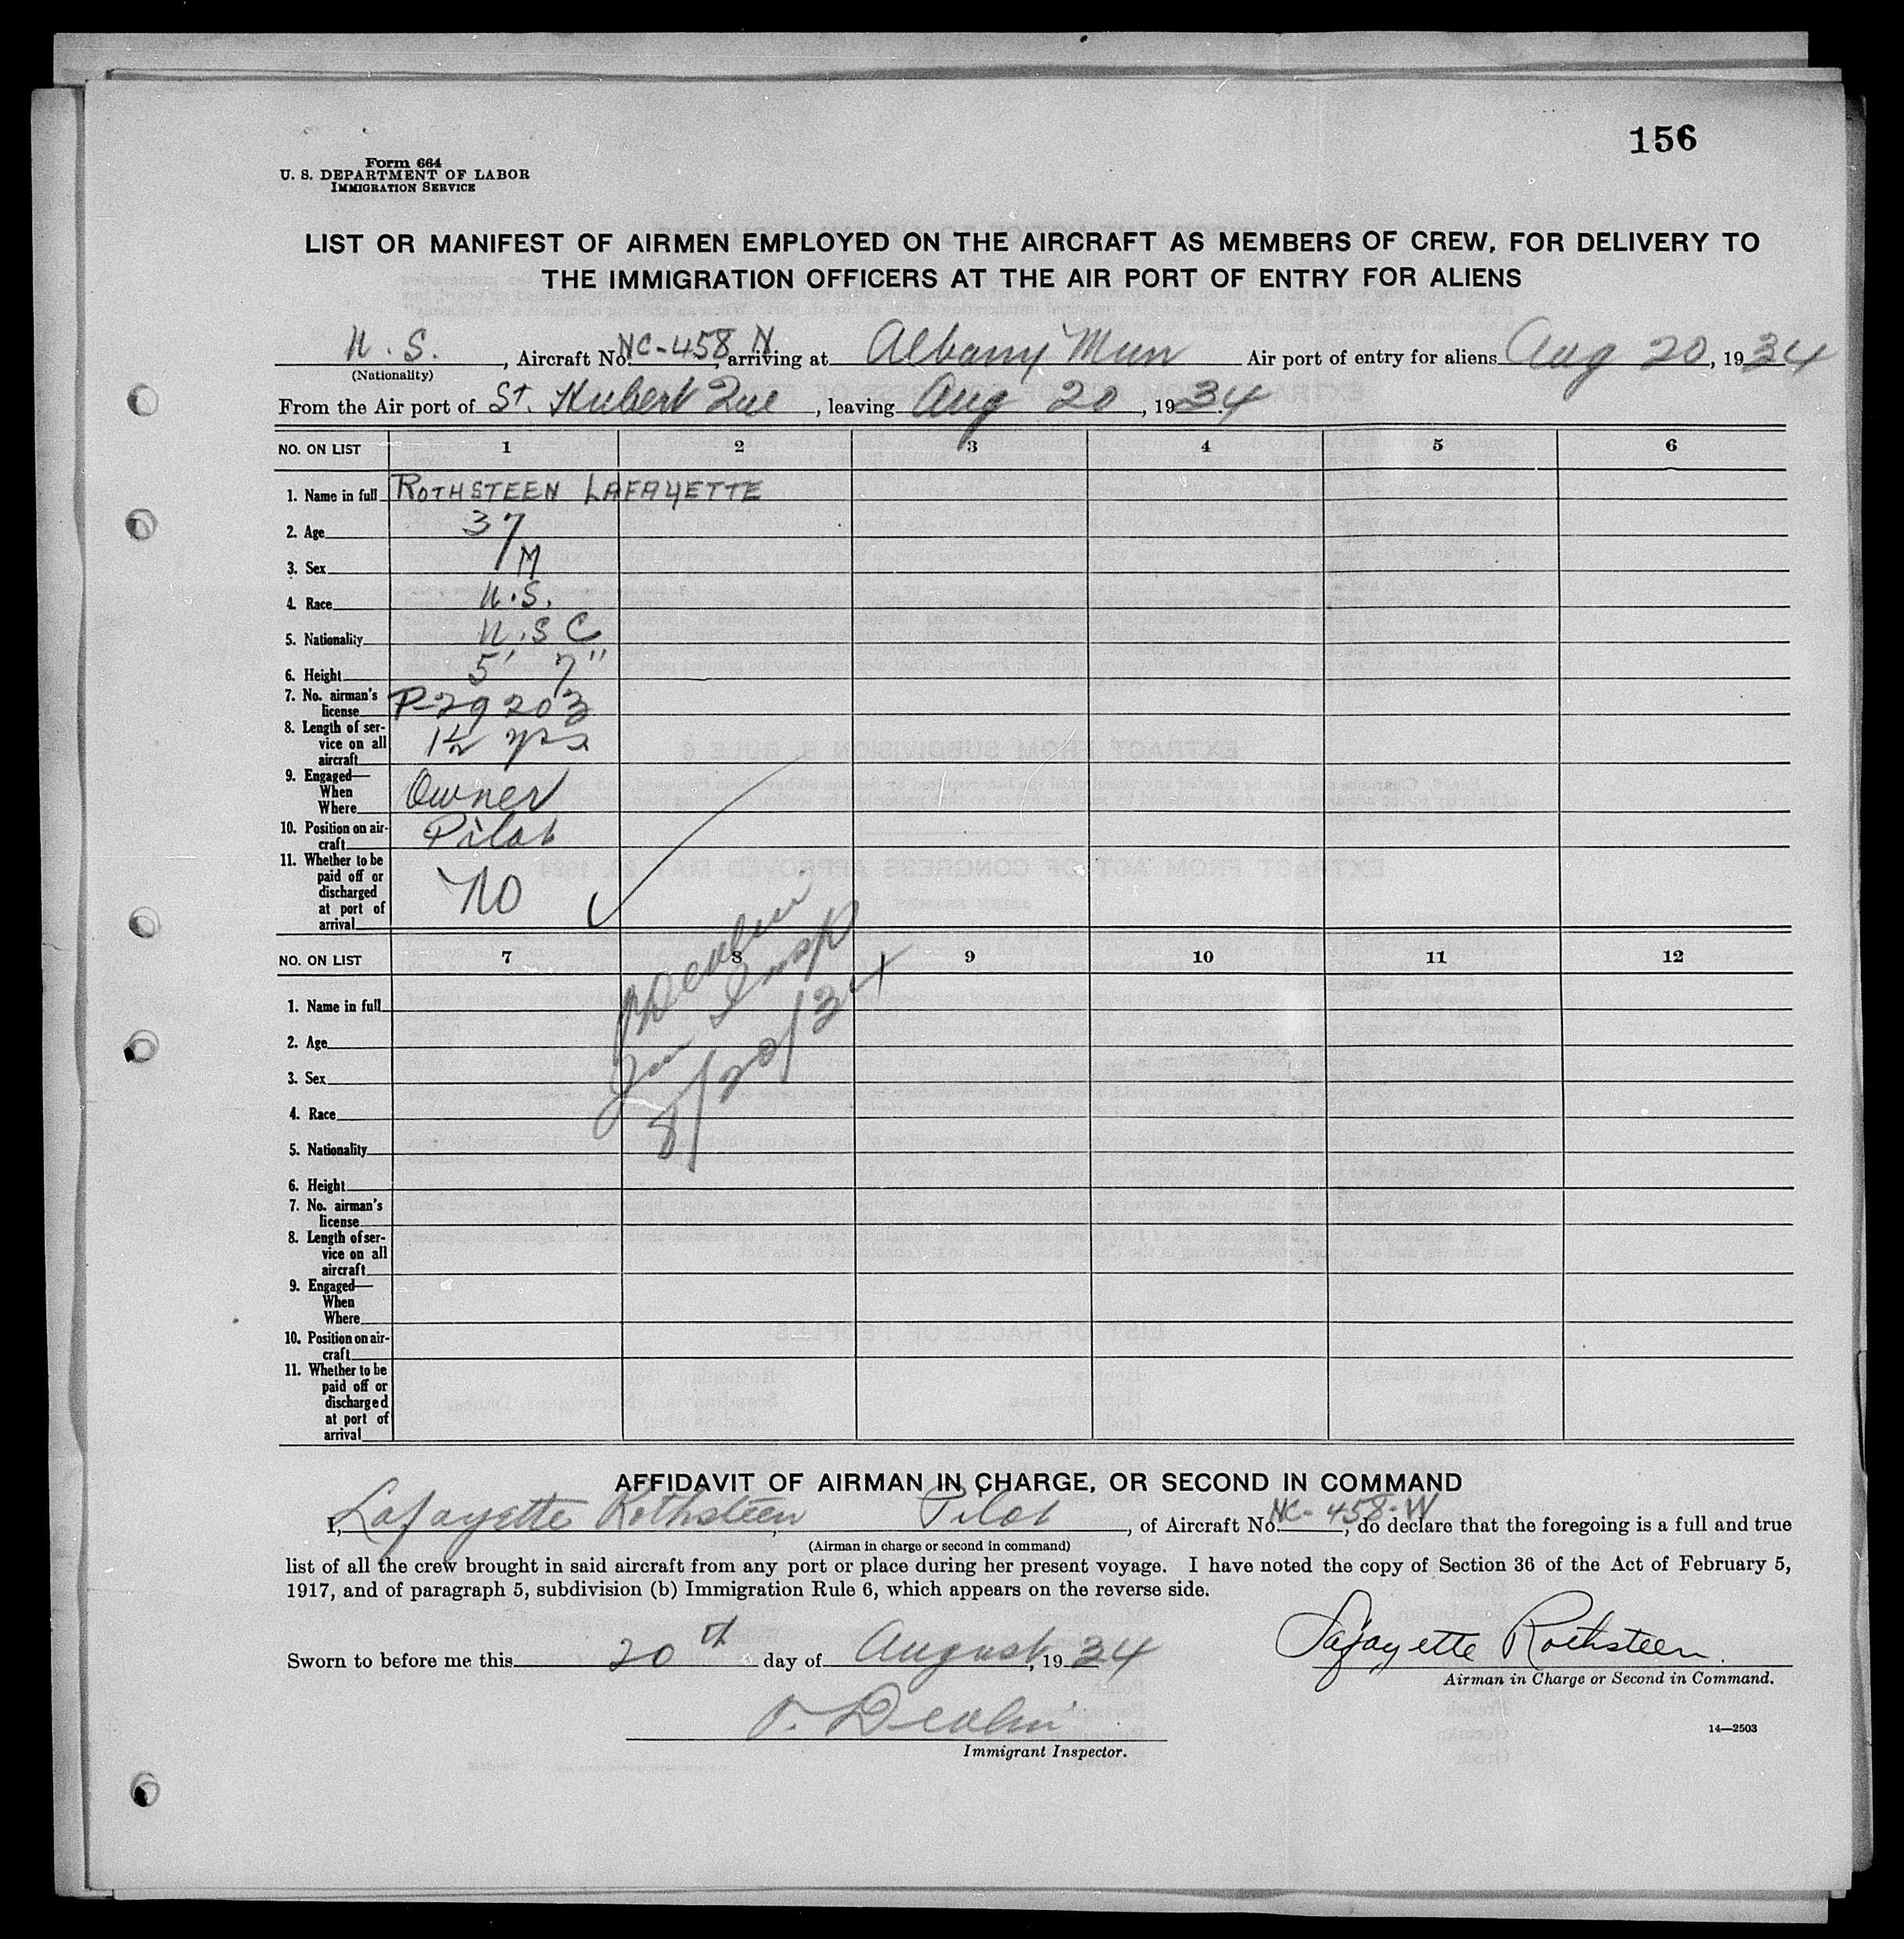 156
Form 664
U. S. DEPARTMENT OF LABOR
IMMIGRATION SERVICE
LIST OR MANIFEST OF AIRMEN EMPLOYED ON THE AIRCRAFT AS MEMBERS OF CREW, FOR DELIVERY TO
THE IMMIGRATION OFFICERS AT THE AIR PORT OF ENTRY FOR ALIENS
U. S. , Aircraft No. NC-458 N, arriving at Albany Mun Air port of entry for aliens Aug 20, 1934
(Nationality)
From the Air port of St. Hubert Que, leaving Aug 20, 1934.
NO. ON LIST 1 2 3 4 5 6
1. Name in full ROTHSTEEN LAFAYETTE
2. Age 37
3. Sex M
4. Race U.S.
5. Nationality U.S C
6. Height 5' 7"
7. No. airman's
license P-29203
8. Length of ser-
vice on all
aircraft 1½ yrs
9. Engaged—
When
Where Owner
10. Position on air-
craft Pilot
11. Whether to be
paid off or
discharged
at port of
arrival NO
Devlin
Imm Insp
8/20/34
NO. ON LIST 7 8 9 10 11 12
1. Name in full
2. Age
3. Sex
4. Race
5. Nationality
6. Height
7. No. airman's
license
8. Length of ser-
vice on all
aircraft
9. Engaged—
When
Where
10. Position on air-
craft
11. Whether to be
paid off or
discharged
at port of
arrival
AFFIDAVIT OF AIRMAN IN CHARGE, OR SECOND IN COMMAND
I, Lafayette Rothsteen, Pilot, of Aircraft No. NC-458-W, do declare that the foregoing is a full and true
(Airman in charge or second in command)
list of all the crew brought in said aircraft from any port or place during her present voyage. I have noted the copy of Section 36 of the Act of February 5,
1917, and of paragraph 5, subdivision (b) Immigration Rule 6, which appears on the reverse side.
Sworn to before me this 20th day of August, 1934
Lafayette Rothsteen.
Airman in Charge or Second in Command.
O. Devlin
Immigrant Inspector.
14—2503